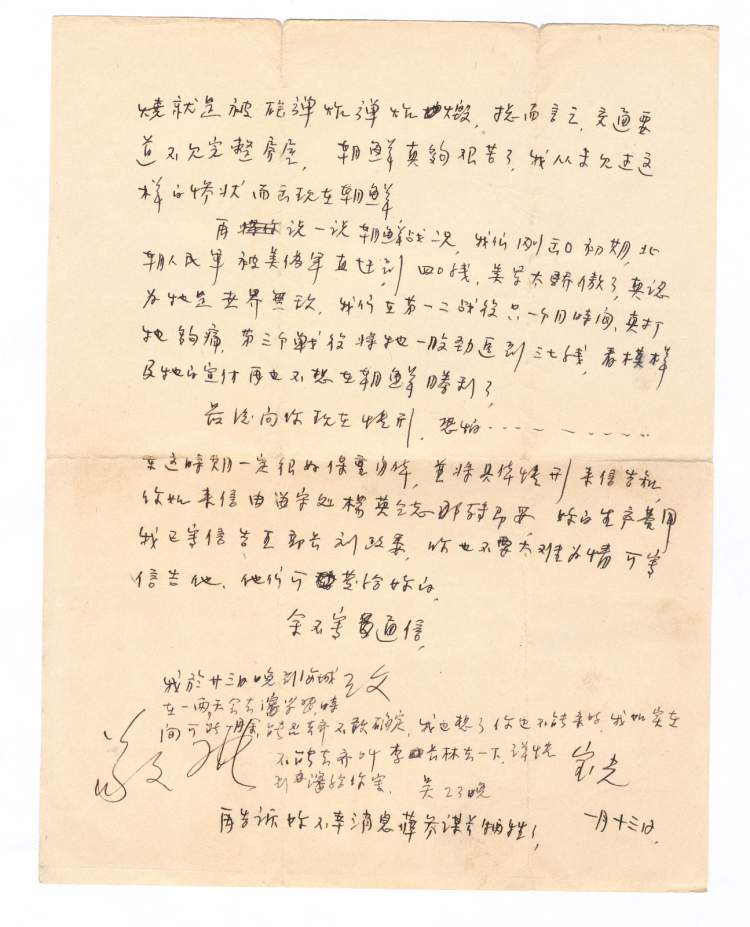 烧就是被砲弹炸弹炸毁，总而言之，交通要
道不欠完整房屋，朝鲜真夠艰苦了，我从未欠过这
样的惨状而出现在朝鲜
再说一说朝鲜战况，我们刚出口初期，北
朝人民军被美伪军直赶到四〇线，美军太骄傲了，真认
为他是世界無敌，我们在第一二战役只一个月时间，真打
他夠痛，第三个战役将他一股劲逼到三七线，看模样
及他的宣传再也不想在朝鲜勝利了，
最后问你现在情形，恐怕……
在这時期一定很好保重身体，並将具体情形来信告知，
你如来信由留守处楊英同志那转即要 你的生产費用
我已写信告王部长刘政委，你也不要太难为情可写
信告他，他们可发给你的，
余不寫 通信，
我於廿三日晚到海城
在一两天会去瀋学习，時
间可能月余，能否去齐不敢确定，我也想了你也不能来的，我如实在
不能去齐叫李长林去一下，详情
到瀋给你写。 吴23晚
敬礼
宝光
再告诉你不幸消息薛参谋长牺牲！
一月十三日，